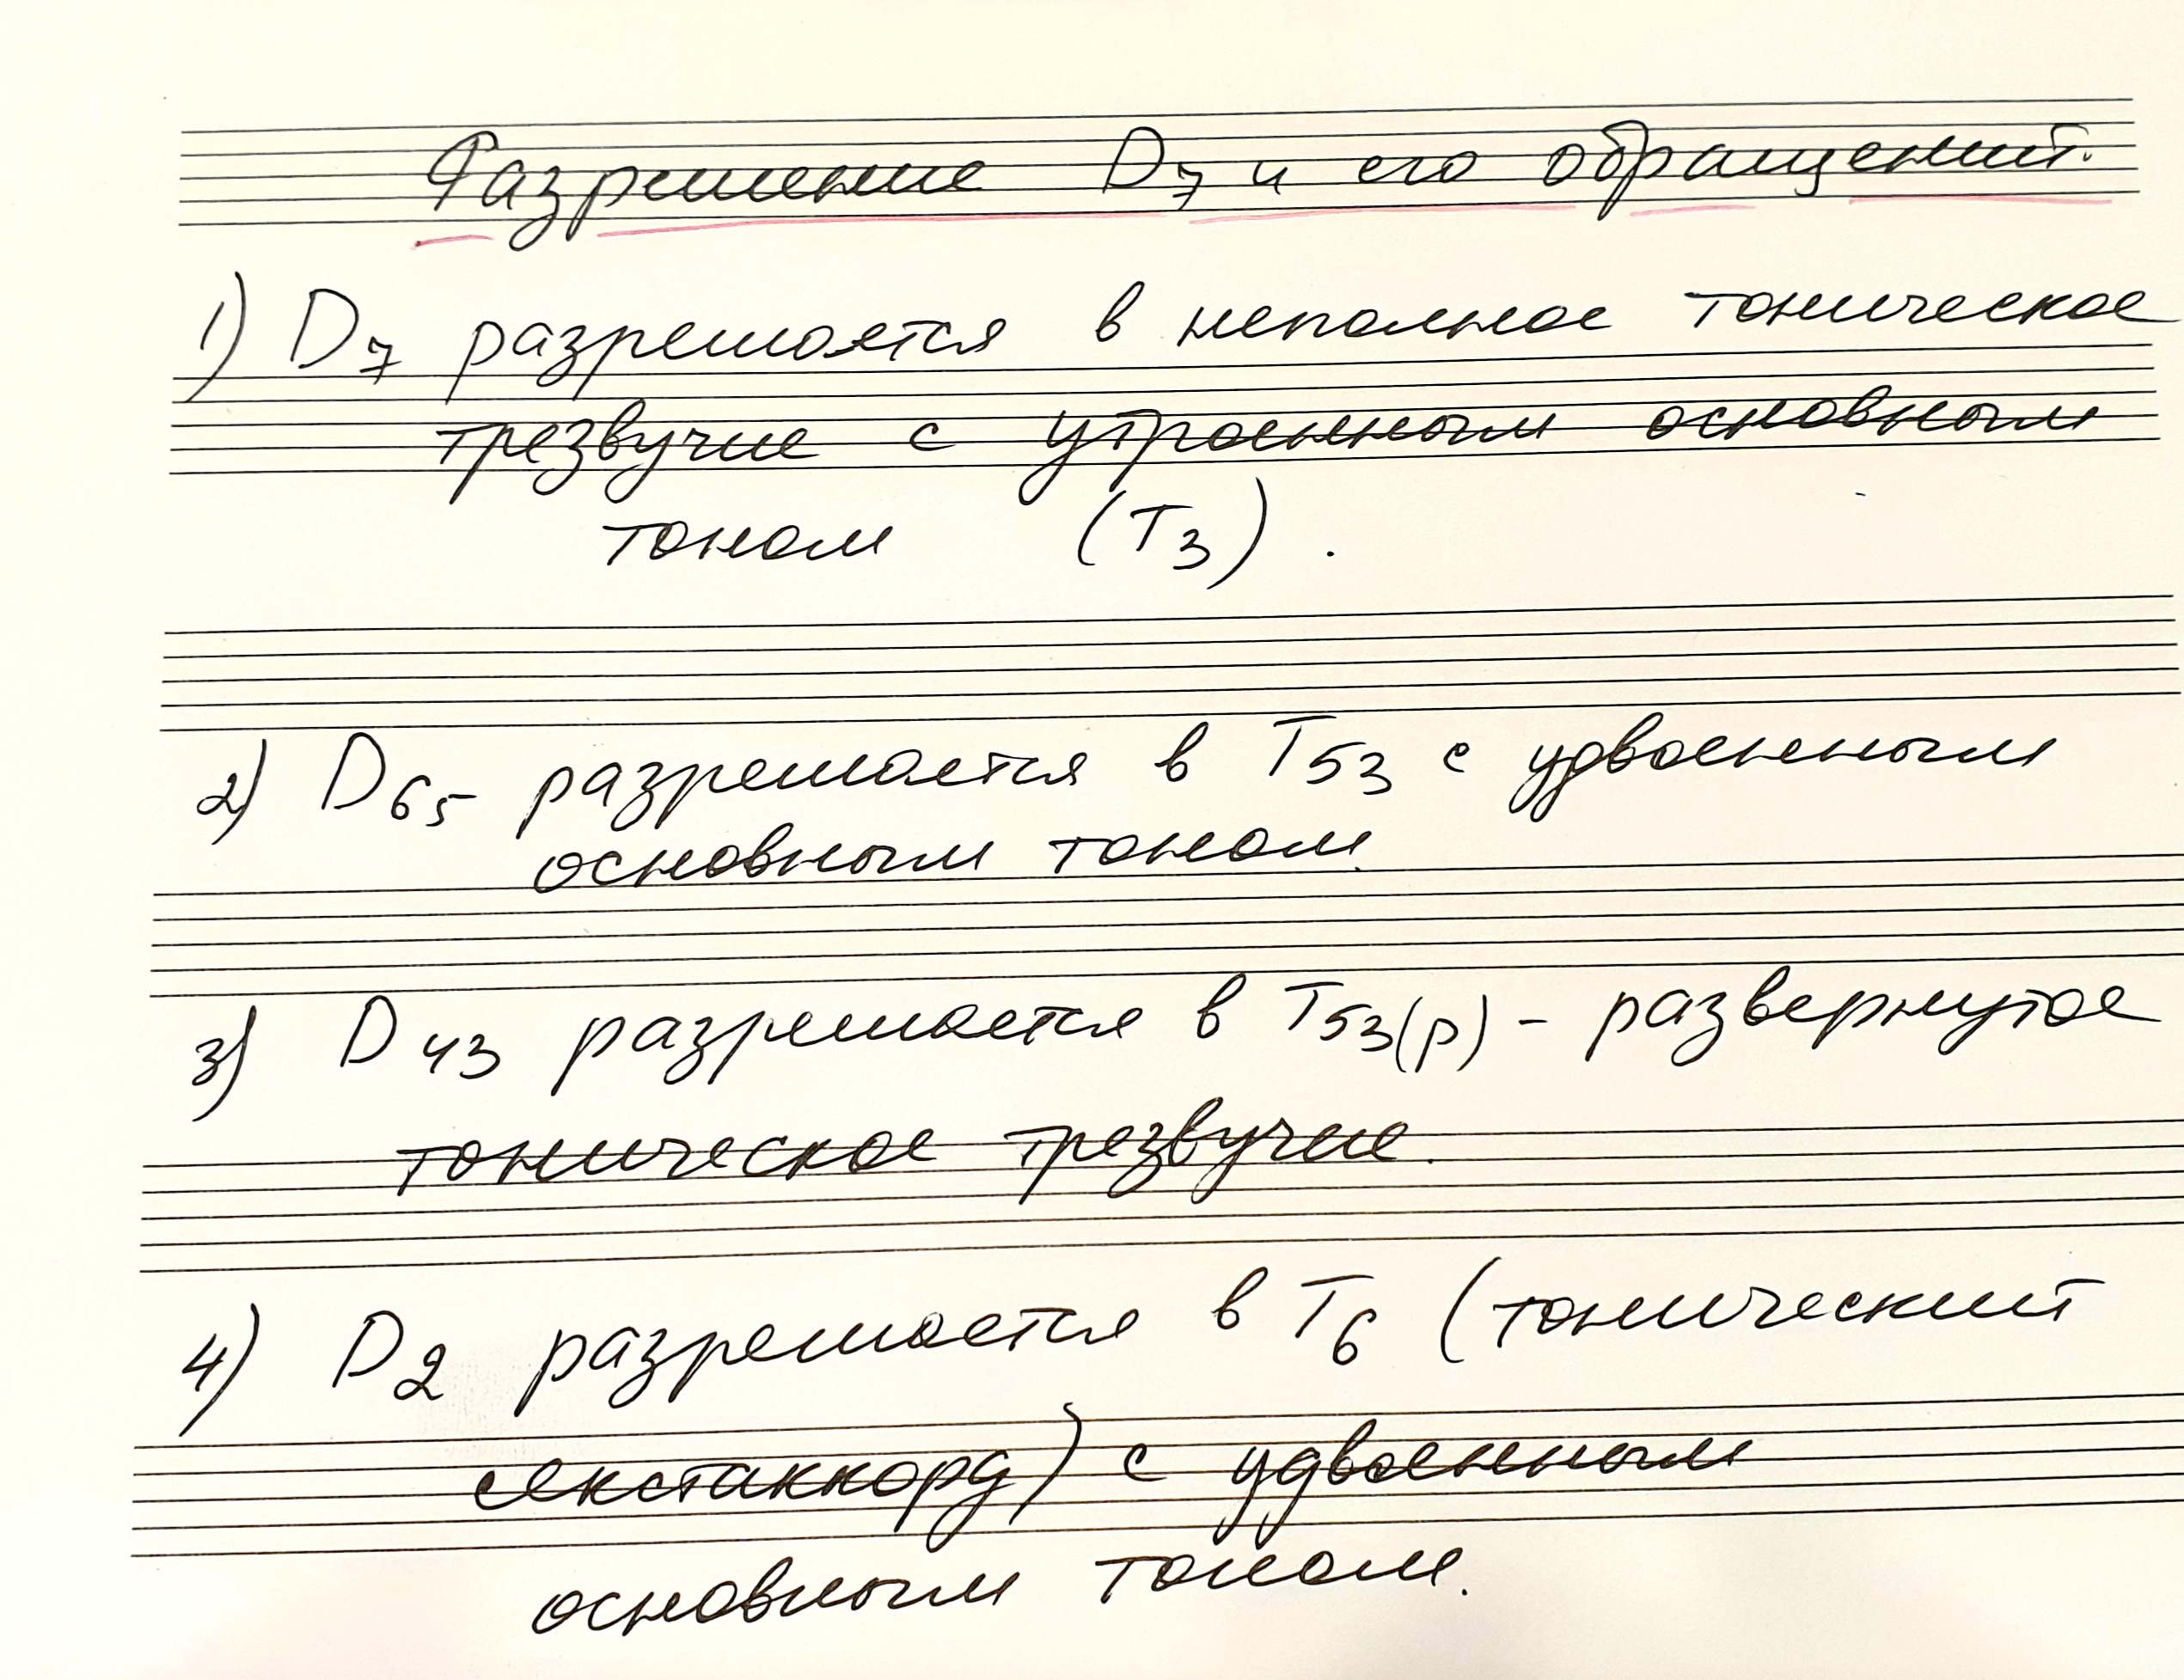 Разрешение D7 и его обращений.
1) D7 разрешается в неполное тоническое
трезвучие с утроенным основным
тоном (T3).
2) D65 разрешается в T53 с удвоенным
основным тоном.
3) D43 разрешается в T53(р) - развернутое
тоническое трезвучие.
4) D2 разрешается в T6 (тонический
секстаккорд) с удвоенным
основным тоном.